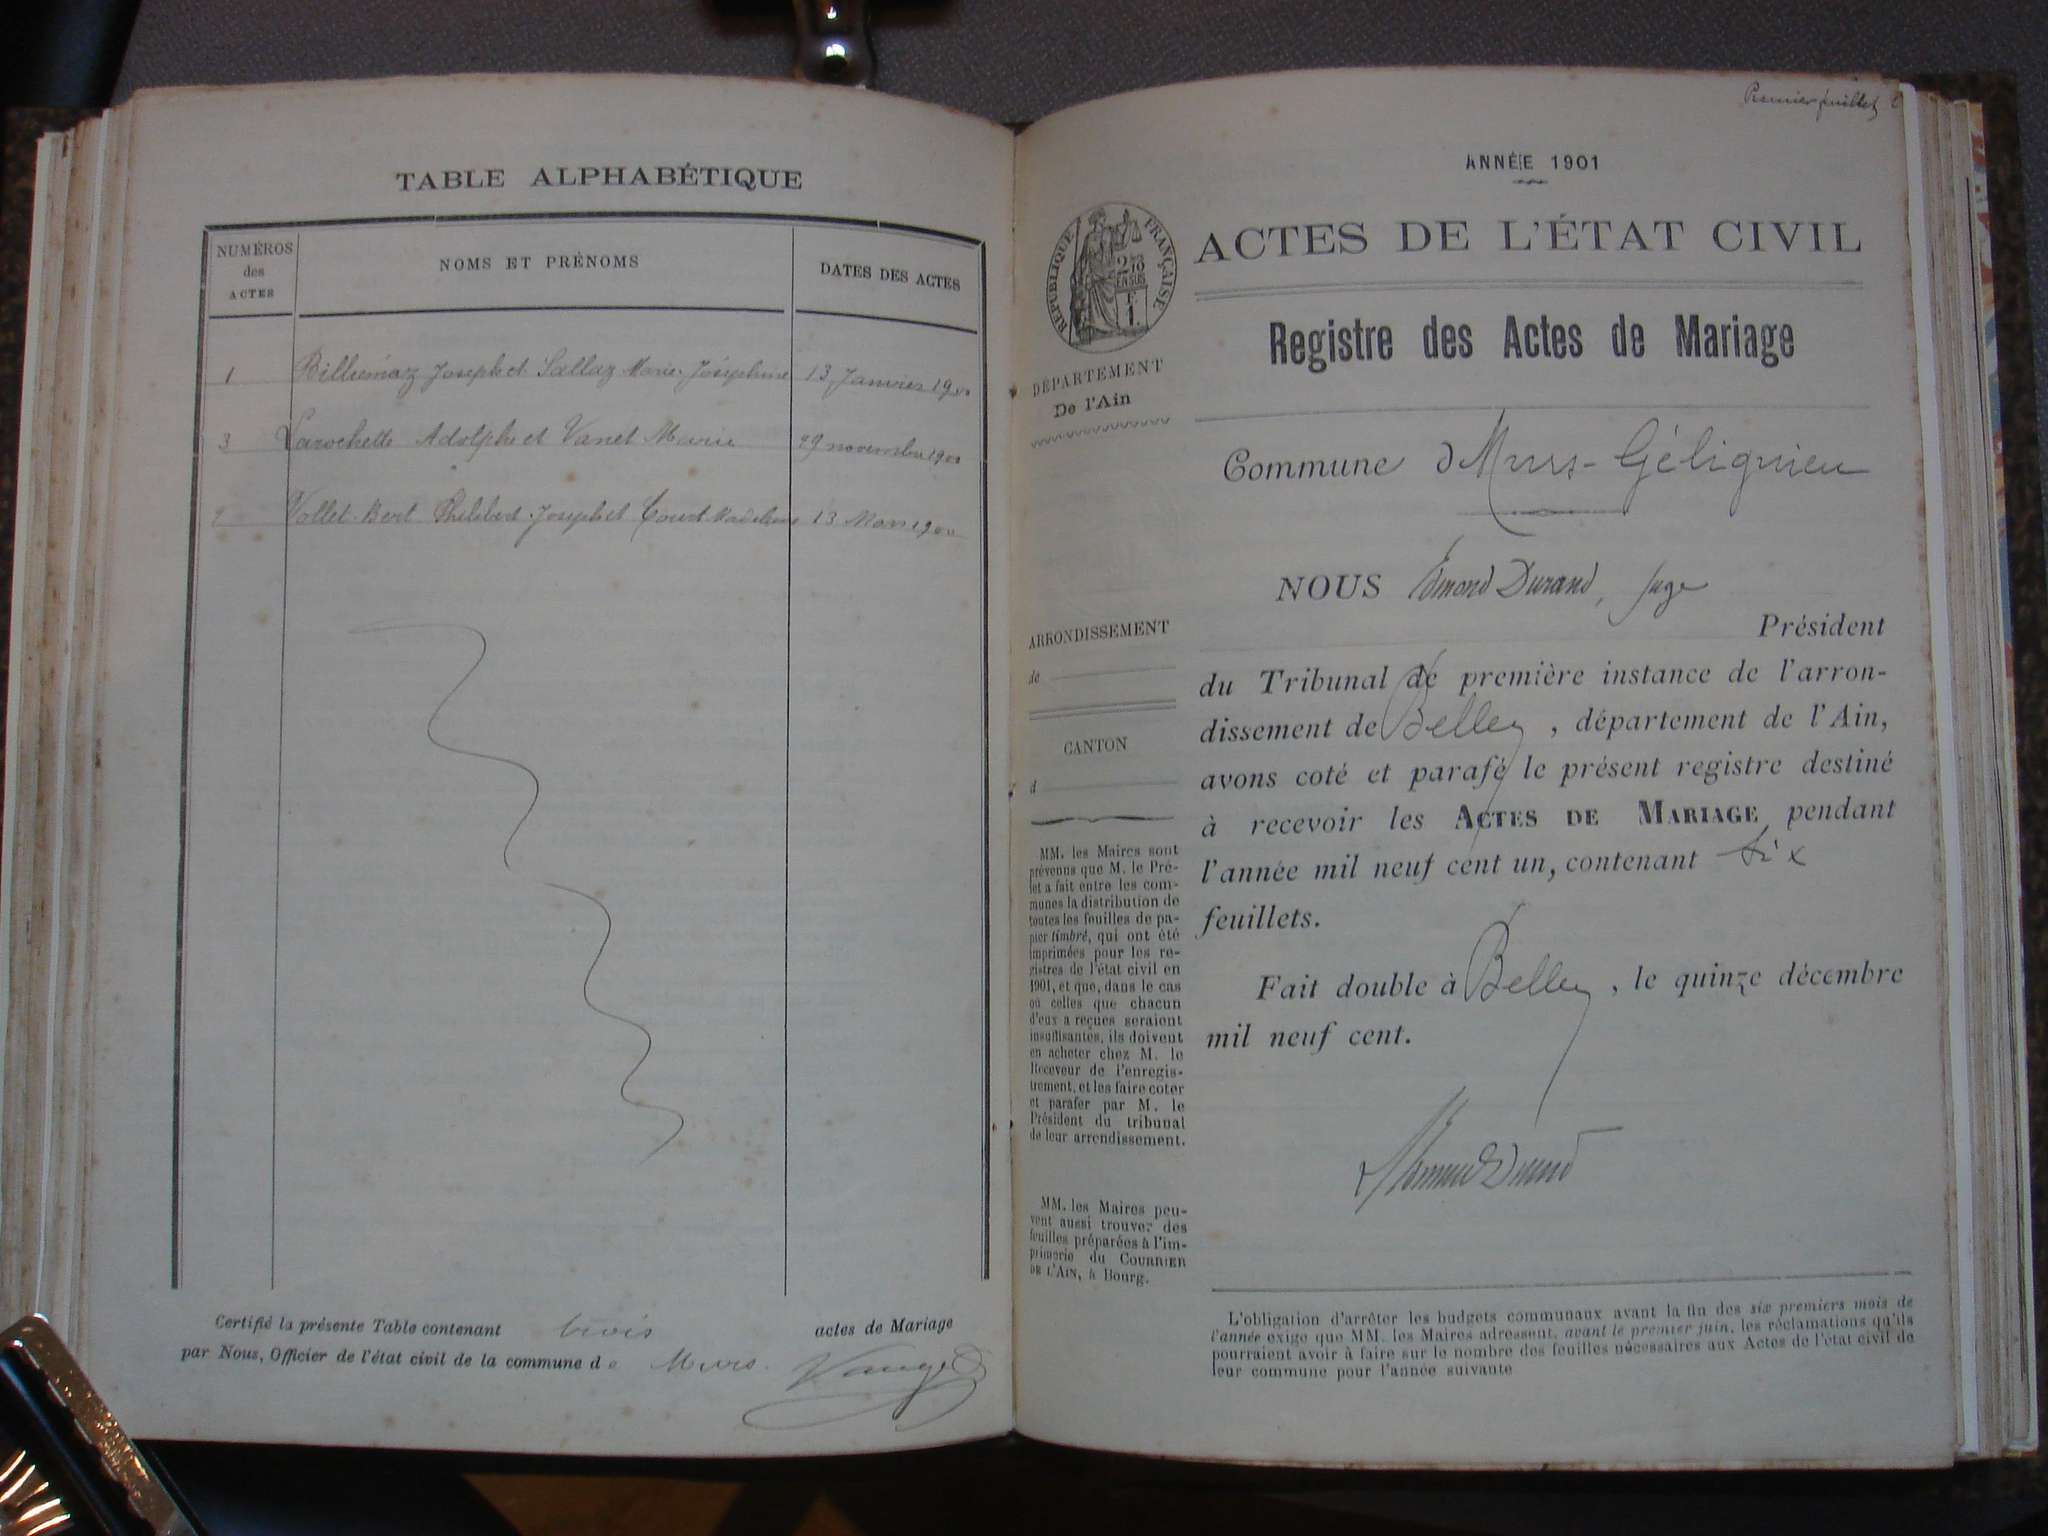 TABLE ALPHABÉTIQUE
NUMÉROS
des
ACTES
NOMS ET PRÉNOMS
DATES DES ACTES
1 Billiémaz Joseph et Sallaz Marie-Joséphine 13 Janvier 1900
3 Larochette Adolphe et Vanet Marie 29 novembre 1900
2 Vollet-Bert Philibert-Joseph et Court Madeleine 13 Mars 1900
Certifié la présente Table contenant trois actes de Mariage
par Nous, Officier de l'état civil de la commune de Murs.
Premier feuillet
ANNÉE 1901
RÉPUBLIQUE FRANÇAISE
ACTES DE L'ÉTAT CIVIL
Registre des Actes de Mariage
DÉPARTEMENT
De l'Ain
Commune d Murs-Gélignieu
NOUS Edmond Durand, Juge
Président
ARRONDISSEMENT
de
CANTON
d
du Tribunal de première instance de l'arron-
dissement de Belley, département de l'Ain,
avons coté et parafé le présent registre destiné
à recevoir les ACTES DE MARIAGE pendant
l'année mil neuf cent un, contenant six
feuillets.
Fait double à Belley, le quinze décembre
mil neuf cent.
Edmond Durand
MM. les Maires sont
prévenus que M. le Pré-
fet a fait entre les com-
munes la distribution de
toutes les feuilles de pa-
pier timbré, qui ont été
imprimées pour les re-
gistres de l'état civil en
1901, et que, dans le cas
où celles que chacun
d'eux a reçues seraient
insuffisantes, ils doivent
en acheter chez M. le
Receveur de l'enregis-
trement, et les faire coter
et parafer par M. le
Président du tribunal
de leur arrondissement.
MM. les Maires peu-
vent aussi trouver des
feuilles préparées à l'im-
primerie du COURRIER
DE L'AIN, à Bourg.
L'obligation d'arrêter les budgets communaux avant la fin des six premiers mois de
l'année exige que MM. les Maires adressent, avant le premier juin, les réclamations qu'ils
pourraient avoir à faire sur le nombre des feuilles nécessaires aux Actes de l'état civil de
leur commune pour l'année suivante